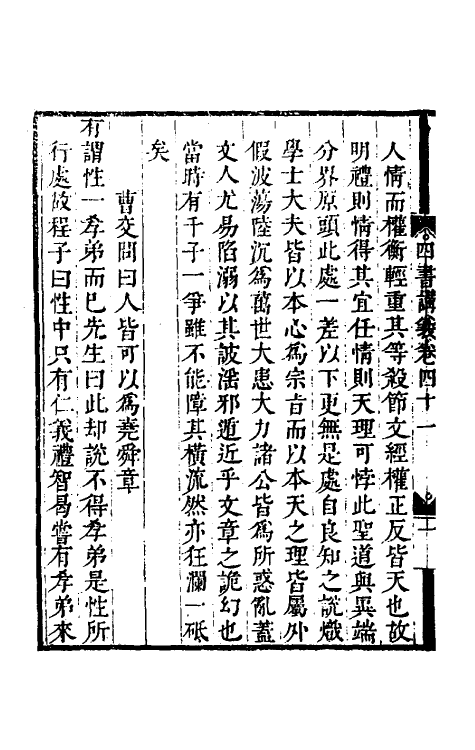 四書講義卷四十一
人情而權衡輕重其等殺節文經權正反皆天也故
明禮則情得其宜任情則天理可悖此聖道與異端
分界原頭此處一差以下更無是處自良知之說熾
學士大夫皆以本心爲宗旨而以本天之理皆屬外
假波蕩陸沉爲萬世大患大力諸公皆爲所惑亂蓋
文人尤易陷溺以其詖滛邪遁近乎文章之詭幻也
當時有千子一爭雖不能障其橫流然亦狂瀾一砥
矣
曹交問曰人皆可以爲堯舜章
有謂性一孝弟而已先生曰此却說不得孝弟是性所
行處故程子曰性中只有仁義禮智曷嘗有孝弟來